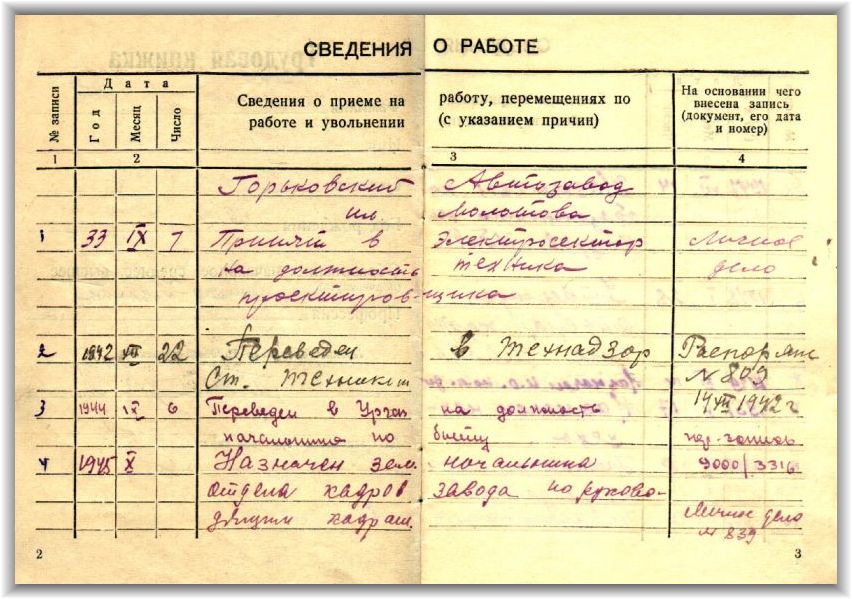 СВЕДЕНИЯ О РАБОТЕ
№ записи
Дата
Год
Месяц
Число
Сведения о приеме на работу, перемещениях по
работе и увольнении (с указанием причин)
На основании чего
внесена запись
(документ, его дата
и номер)
1 2 3 4
Горьковский Автозавод
им. Молотова
1 33 IX 7 Принят в Электросектор Личное
на должность техника дело
проектировщика
2 1942 XII 22 Переведен в Технадзор Распоряж
Ст. техником №809
14 XII 1942 г
3 1944 IX 6 Переведен в на должность
начальника по быту
4 1945 X Назначен зам. начальника 9000/3316
отдела кадров завода по руково-
дящим кадрам. Личное дело
№ 839
2 3